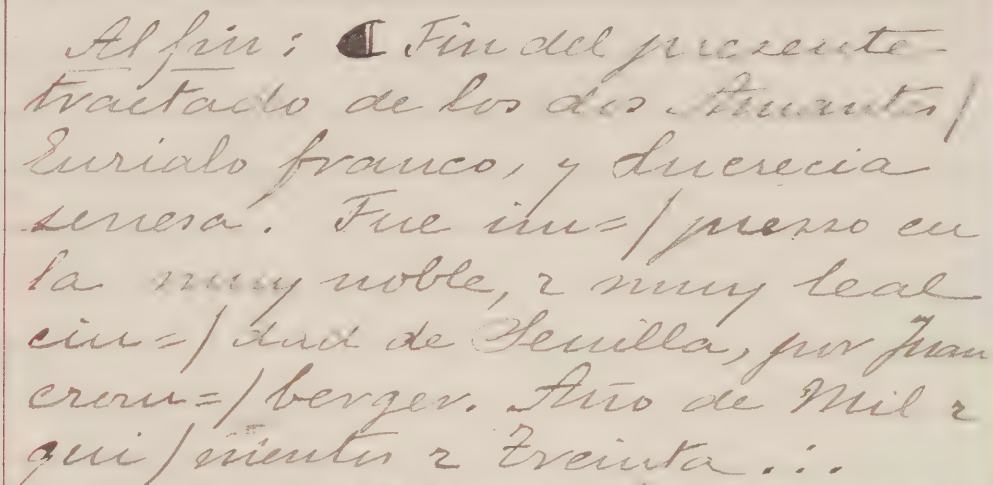 Al fin: ¶ Fin del presente
tractado de los dos Amantes /
Eurialo franco, y Lucrecia
senesa. Fue im= / presso en
la muy noble, z muy leal
ciu= / dad de Seuilla, por Juan
crom= / berger. Año de Mil z
qui / nientos z Treinta . : .